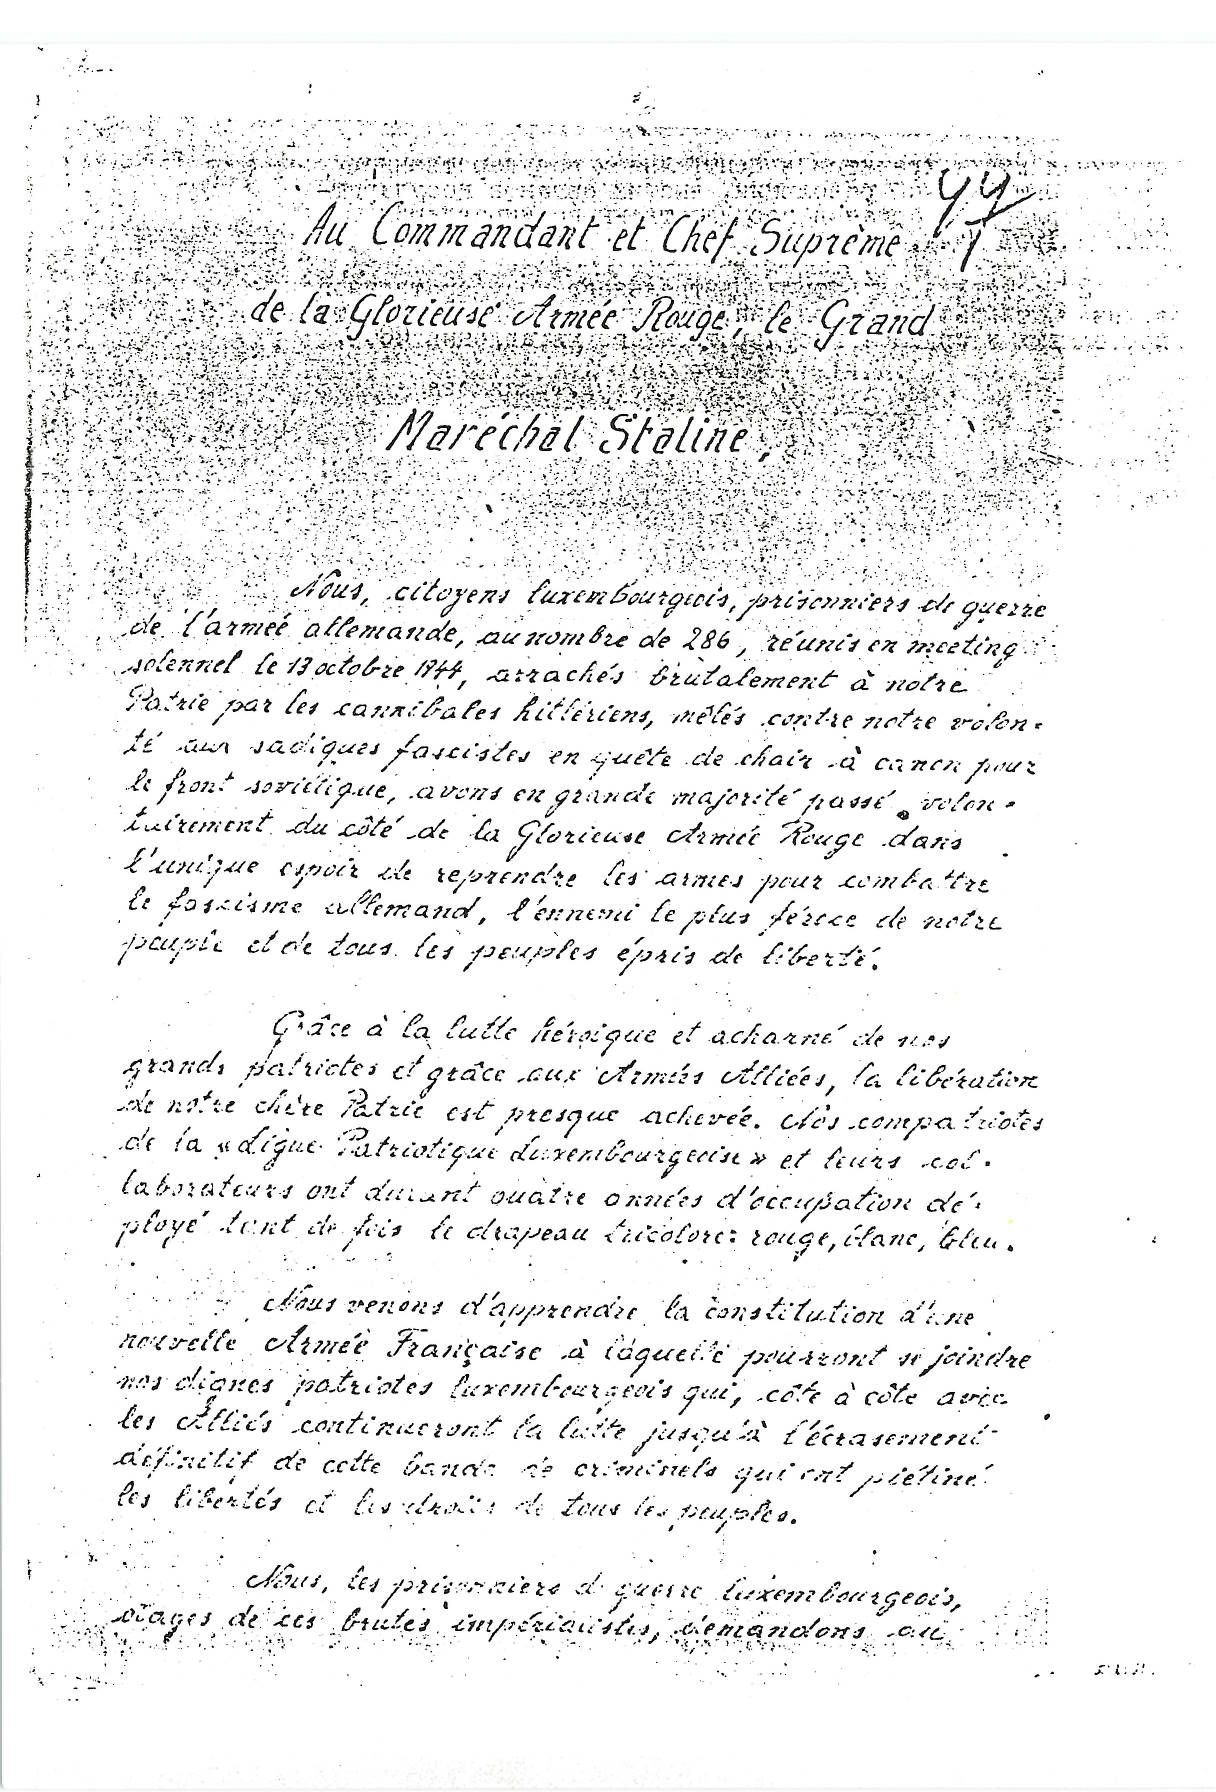 44
Au Commandant et Chef Suprême
de la Glorieuse Armée Rouge, le Grand
Maréchal Staline,
Nous, citoyens luxembourgeois, prisonniers de guerre
de l'armée allemande, au nombre de 286, réunis en meeting
solennel le 13 octobre 1944, arrachés brutalement à notre
Patrie par les cannibales hitlériens, mêlés contre notre volon-
té aux sadiques fascistes en quête de chair à canon pour
le front soviétique, avons en grande majorité passé volon-
tairement du côté de la Glorieuse Armée Rouge dans
l'unique espoir de reprendre les armes pour combattre
le fascisme allemand, l'ennemi le plus féroce de notre
peuple et de tous les peuples épris de liberté.
Grâce à la lutte héroïque et acharné de nos
grands patriotes et grâce aux Armées Alliées, la libération
de notre chère Patrie est presque achevée. Nos compatriotes
de la « Ligue Patriotique Luxembourgeoise » et leurs col-
laborateurs ont durant quatre années d'occupation dé-
ployé tant de fois le drapeau tricolore: rouge, blanc, bleu.
Nous venons d'apprendre la constitution d'une
nouvelle Armée Française à laquelle pourront se joindre
nos dignes patriotes luxembourgeois qui, côte à côte avec
les Alliés continueront la lutte jusqu'à l'écrasement
définitif de cette bande de criminels qui ont piétiné
les libertés et les droits de tous les peuples.
Nous, les prisonniers de guerre luxembourgeois,
otages de ces brutes impérialistes, demandons au